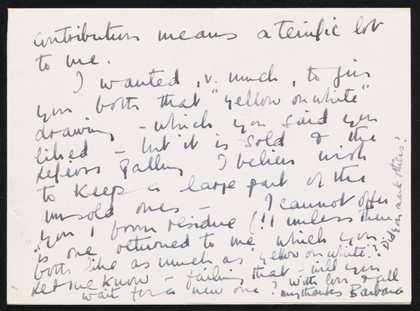 contribution means a terrific lot
to me.
I wanted, v. much, to give
you both that "yellow on white"
drawing - which you said you
liked - but it is sold & the
Gallery I believe wish
to keep a large part of the
unsold ones - I cannot offer
you 1 from residue (!! unless there
is one returned to me which you
both like as much as yellow on white.?
Did you mark others?
Let me know - failing that - will you
wait for a new one? With love & all
my thanks Barbara